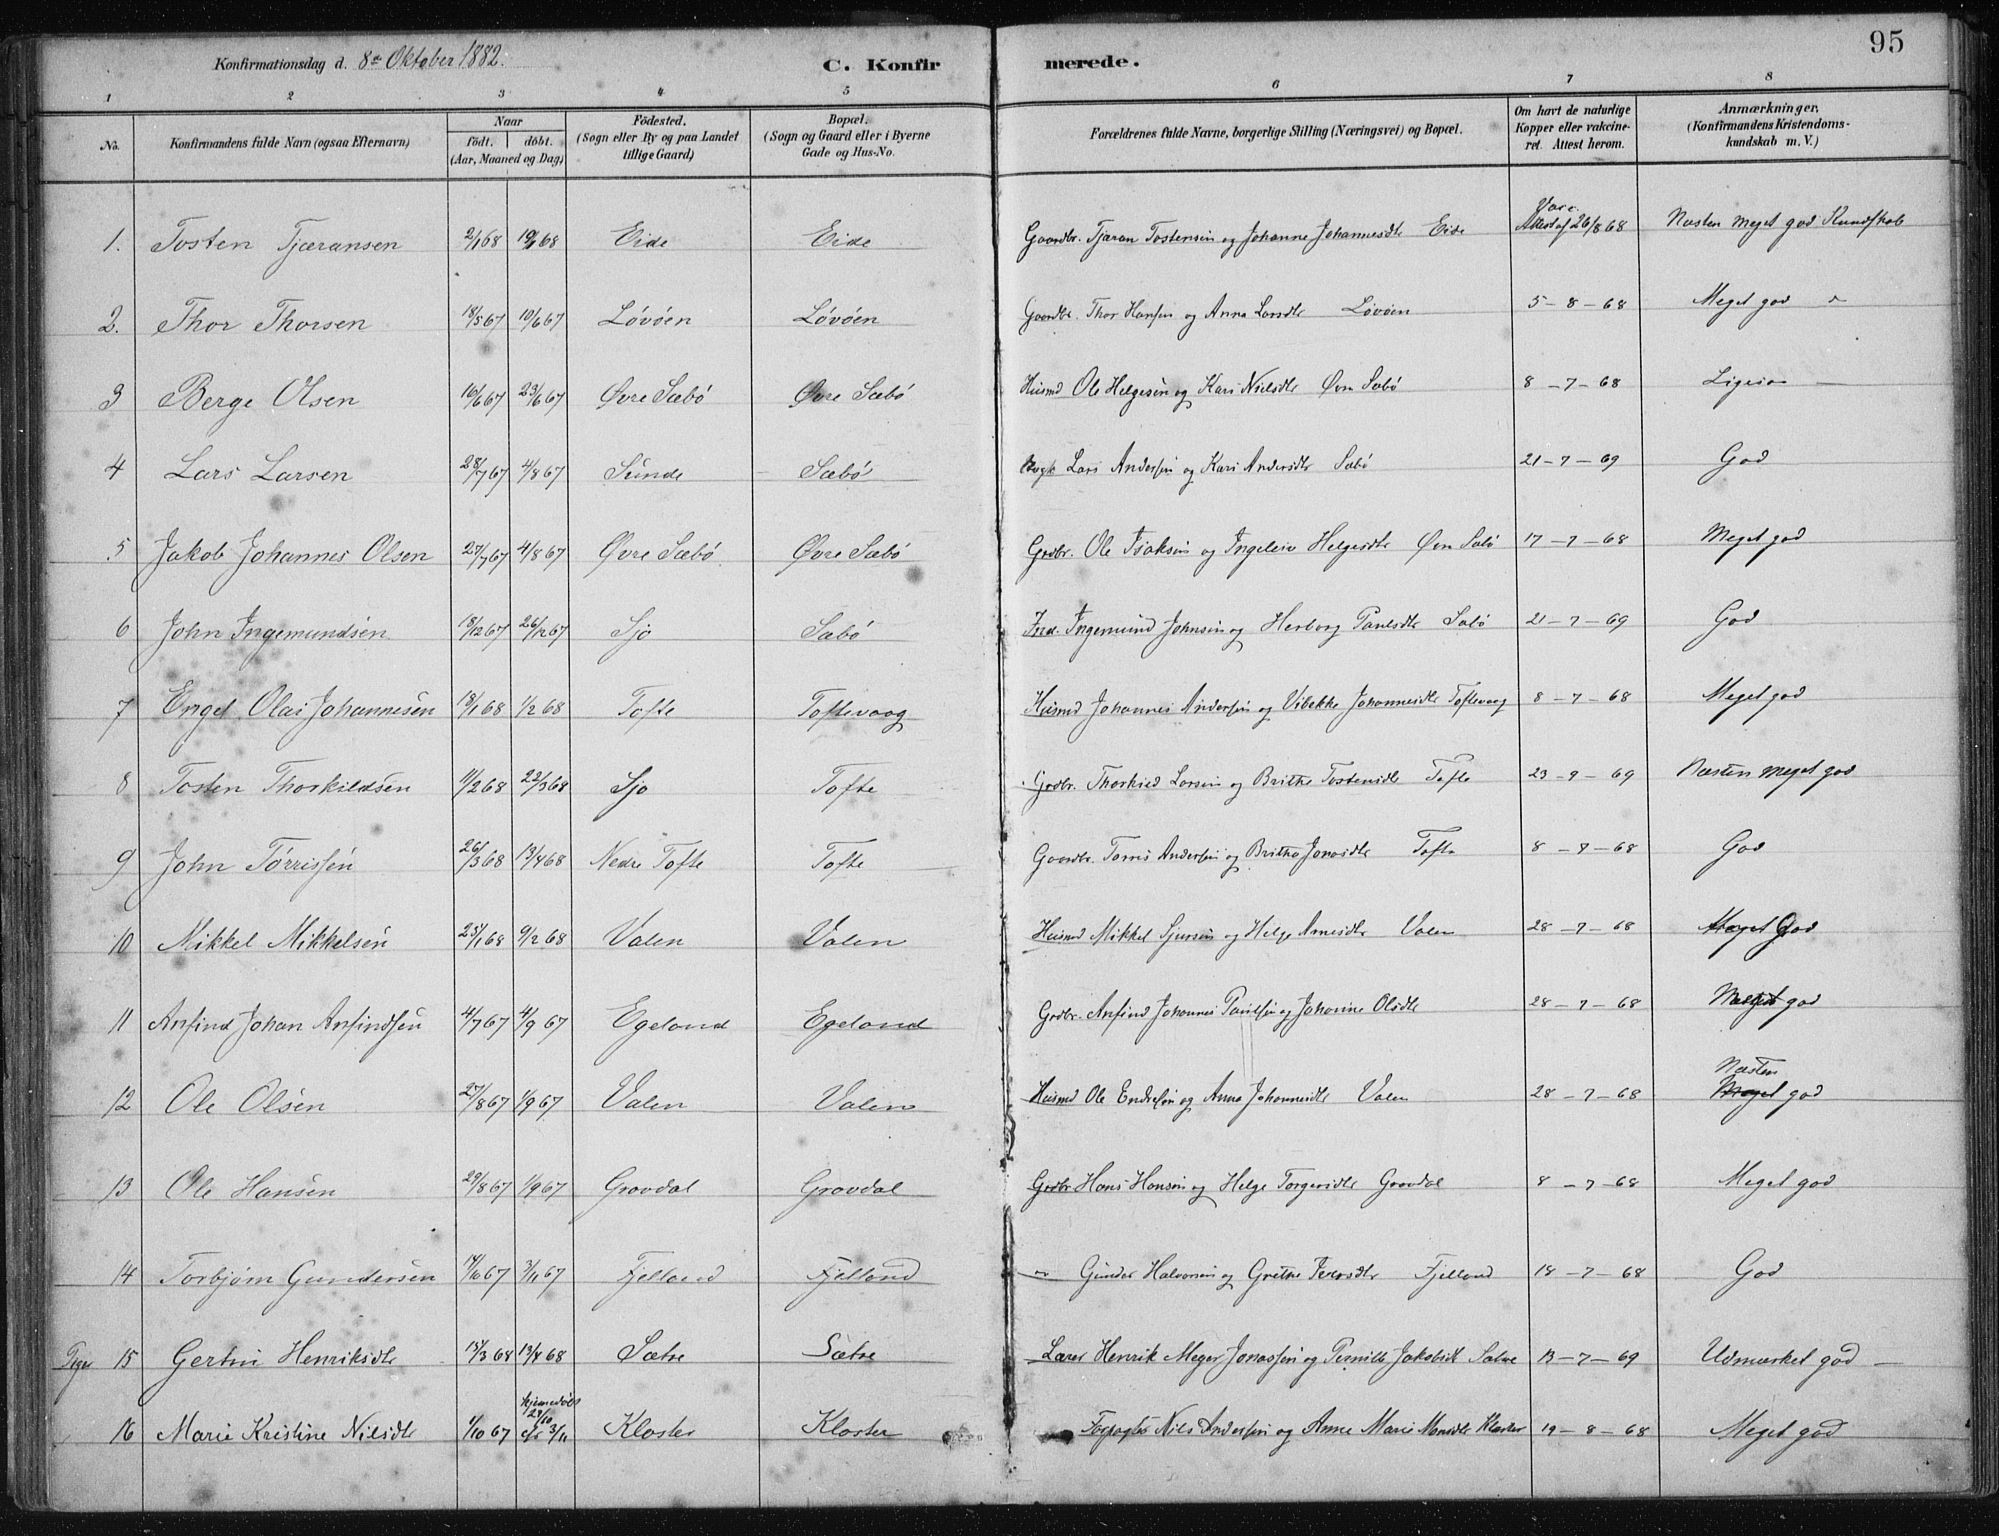 95
Konfirmationsdag d. 8de Oktober 1882. C. Konfirmerede.
1 2 3 4 5 6 7 8
No. Konfirmandens fulde Navn (ogsaa Efternavn) Naar födt. döbt. (Aar, Maaned og Dag) Födested. (Sogn eller By og paa Landet tillige Gaard) Bopæl. (Sogn og Gaard eller i Byerne Gade og Hus-No. Forældrenes fulde Navne, borgerlige Stilling (Næringsvei) og Bopæl. Om havt de naturlige Kopper eller vakcineret. Attest herom. Anmærkninger. (Konfirmandens Kristendomskundskab m. V.)
1. Tosten Tjæransen 2/1 68 19/1 68 Eide Eide Gaardbr. Tjæran Tostensen og Johanne Johannesdtr Eide Vacc. Attest af 26/8 68 Næsten meget god Kundskab
2. Thor Thorsen 18/5 67 10/6 67 Løvøen Løvøen Gaardbr. Thor Hansen og Anna Larsdtr Løvøen 5-8-68 Meget god "
3 Berge Olsen 16/6 67 23/6 67 Øvre Sæbø Øvre Sæbø Husmd Ole Helgesen og Kari Nielsdtr Øvre Sæbø 8-7-68 Ligesaa
4 Lars Larsen 28/7 67 4/8 67 Sunde Sæbø Lars Andersen og Kari Andersdtr Sæbø 21-7-69 God
5 Jakob Johannes Olsen 27/7 67 4/8 67 Øvre Sæbø Øvre Sæbø Grdbr. Ole Isaksen og Ingeleiv Helgesdtr Øvre Sæbø 17-7-68 Meget god
6 John Ingemundsen 18/12 67 26/12 67 Sjo Sæbø Ingemund Johnsen og Herborg Paulsdtr Sæbø 21-7-69 God
7 Engel Olai Johannesen 18/1 68 1/2 68 Tofte Toftevaag Husmd Johannes Andersen og Vibekke Johannesdtr Toftevaag 8-7-68 Meget god
8 Tosten Thorkildsen 11/2 68 22/3 68 Sjo Tofte Grdbr. Thorkild Larsen og Brithe Tostensdtr Tofte 23-9-69 Næsten meget god
9 John Tørrissen 26/3 68 13/4 68 Nedre Tofte Tofte Gaardbr. Tørris Andersen og Britha Jonasdtr Tofte 8-7-68 God
10 Mikkel Mikkelsen 25/1 68 9/2 68 Valen Valen Husmd Mikkel Sjursen og Helge Arnesdtr Valen 28-7-68 Meget God
11 Anfind Johan Anfindsen 4/7 67 4/9 67 Egeland Egeland Grdbr. Anfind Johannes Paulsen og Johanne Olsdtr 28-7-68 Meget god
12 Ole Olsen 27/8 67 1/9 67 Valen Valen Husmd Ole Endresen og Anna Johannesdtr Valen 28-7-68 Næsten Meget god
13 Ole Hansen 29/8 67 1/9 67 Gravdal Gravdal Grdbr Hans Hansen og Helge Torgersdtr Gravdal 8-7-68 Meget god
14 Torbjørn Gundersen 14/10 67 3/11 67 Fjelland Fjelland " Gunder Halvorsen og Grethe Iversdtr Fjelland 18-7-68 God
Piger 15 Gertrui Henriksdtr 15/3 68 13/4 68 Sætre Sætre Lærer Henrik Meyer Jonassen og Pernille Jakobsdt Sætre 13-7-69 Udmærket god
16 Marie Kristine Nilsdtr 1/10 67 hjemmedøbt 29/10 3/11 Kloster Kloster Forpagter Nils Andersen og Anne Marie Monsdtr Kloster 19-8-68 Meget god